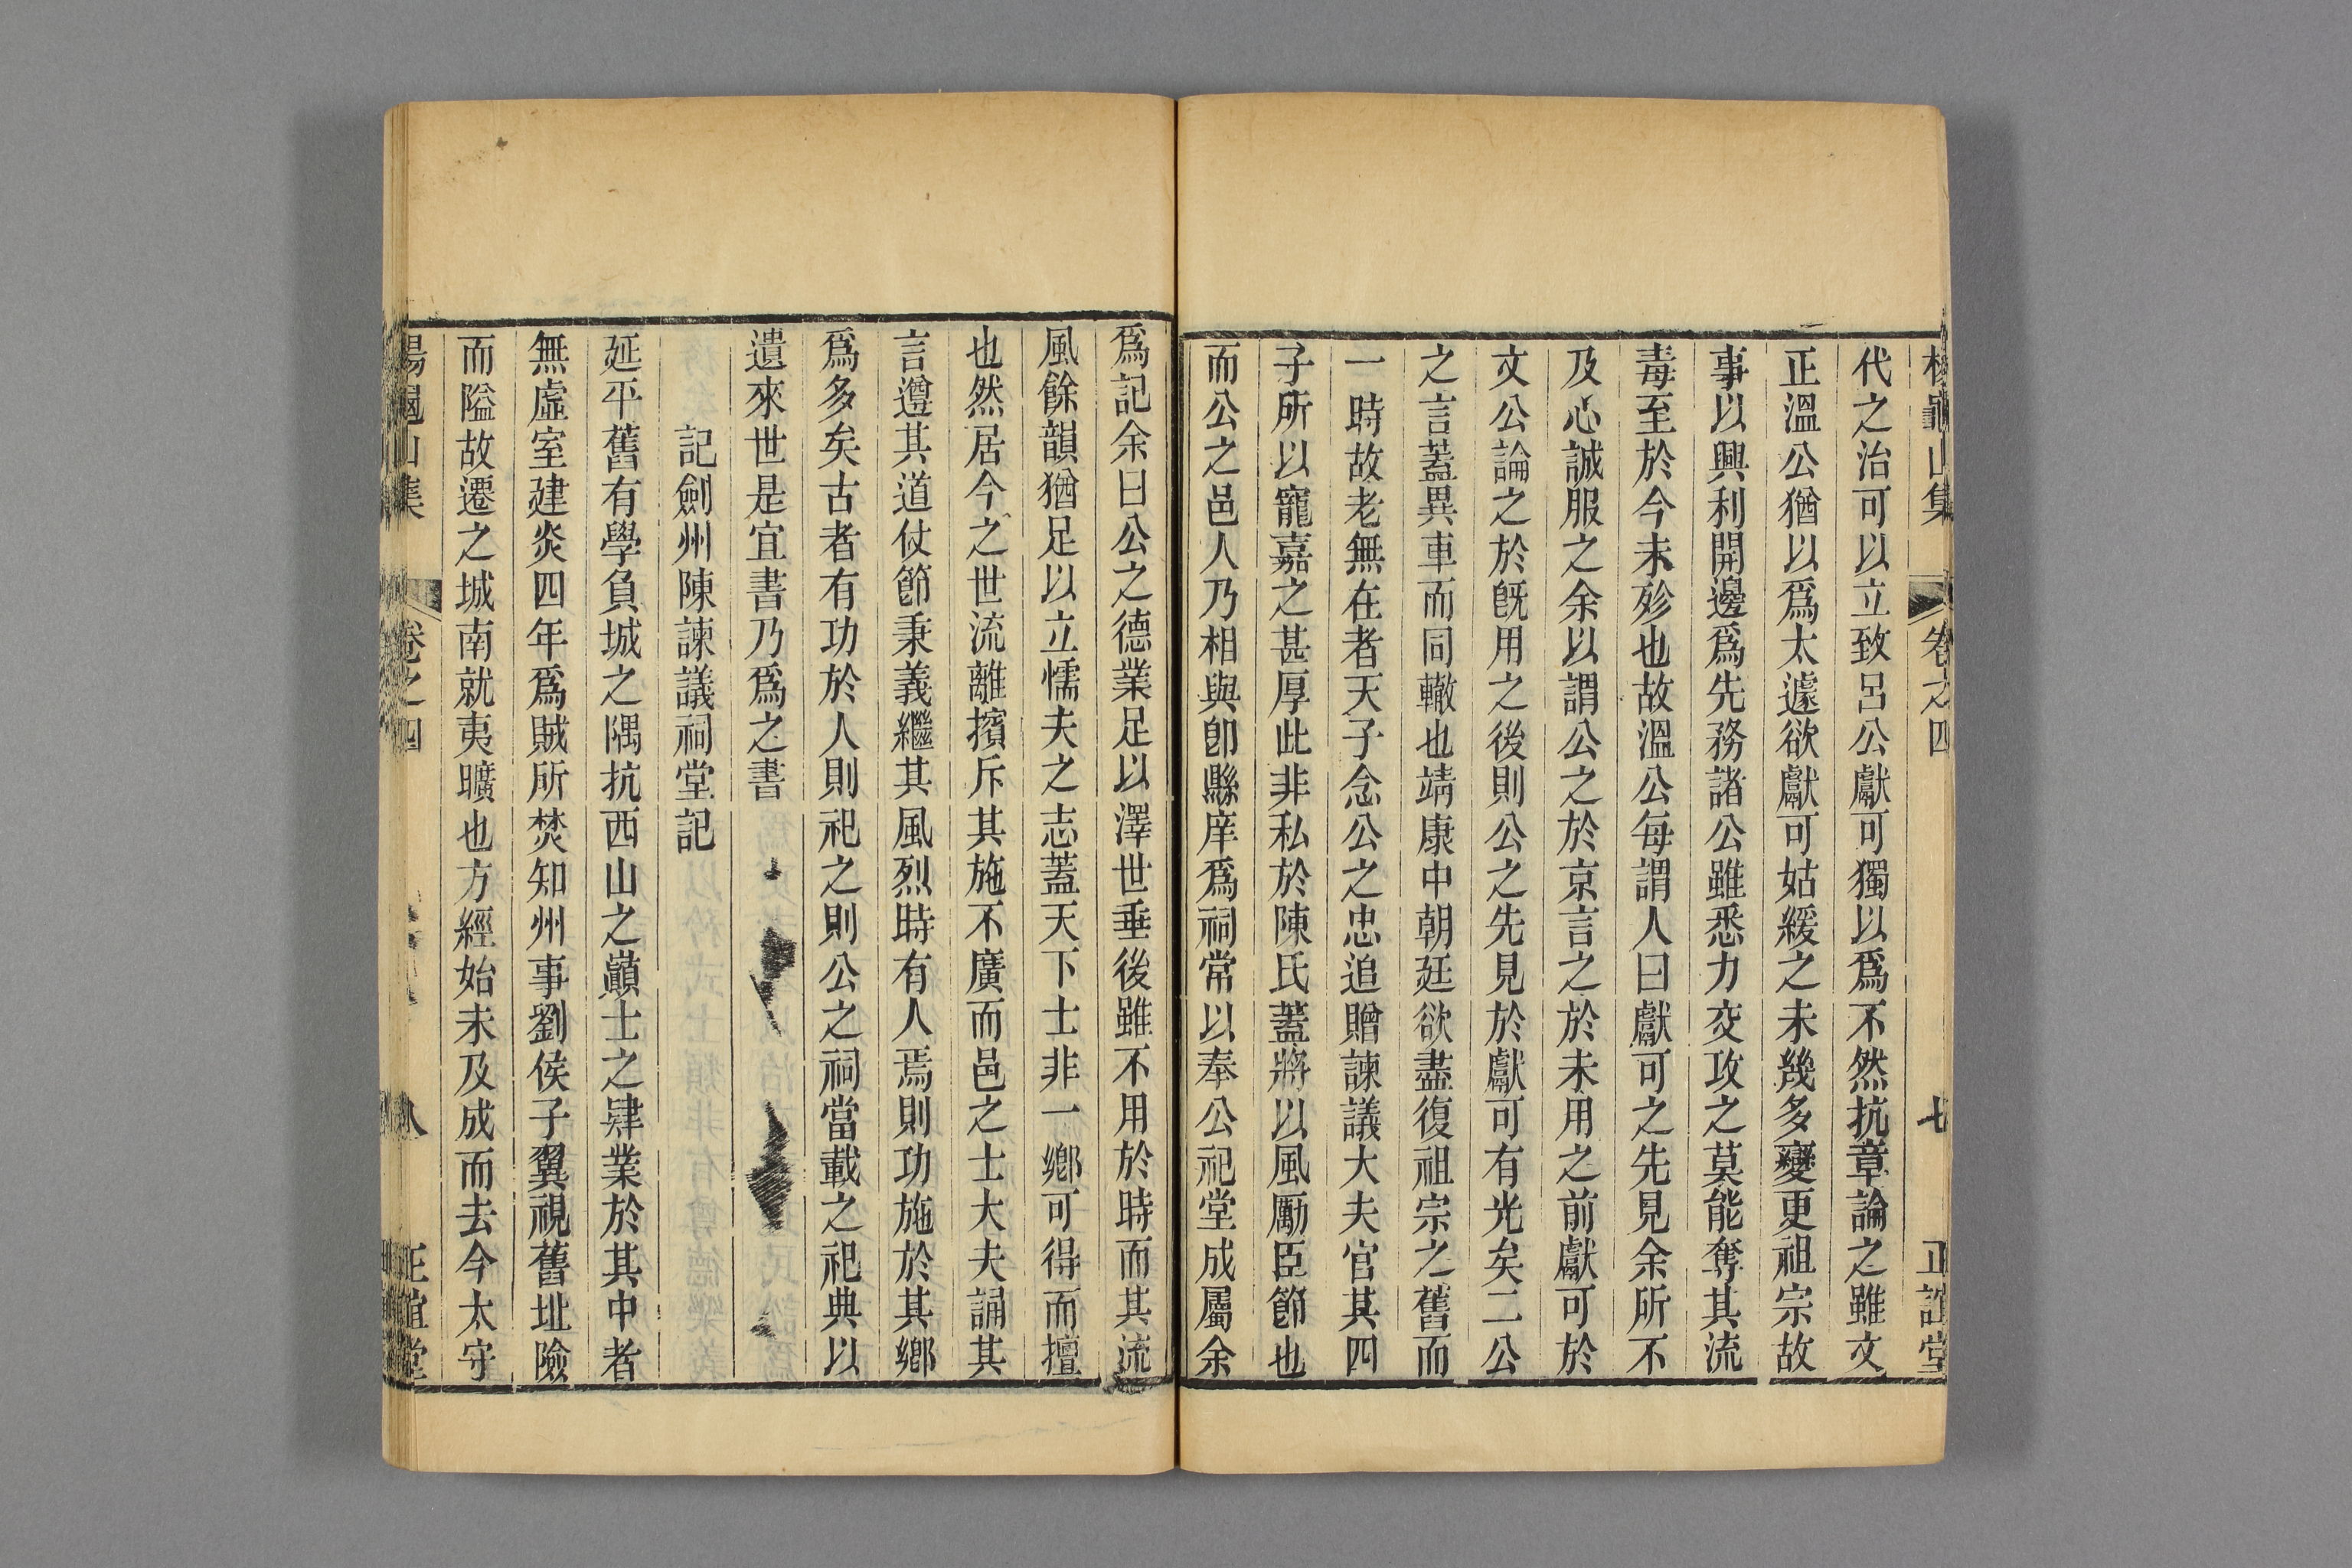 楊龜山集 卷之四 七 正誼堂
代之治可以立致呂公獻可獨以爲不然抗章論之雖文
正溫公猶以爲太遽欲獻可姑緩之未幾多變更祖宗故
事以興利開邊爲先務諸公雖悉力交攻之莫能奪其流
毒至於今未殄也故溫公每謂人曰獻可之先見余所不
及心誠服之余以謂公之於京言之於未用之前獻可於
文公論之於旣用之後則公之先見於獻可有光矣二公
之言蓋異車而同轍也靖康中朝廷欲盡復祖宗之舊而
一時故老無在者天子念公之忠追贈諫議大夫官其四
子所以寵嘉之甚厚此非私於陳氏蓋將以風厲臣節也
而公之邑人乃相與卽縣庠爲祠常以奉公祀堂成屬余
爲記余曰公之德業足以澤世垂後雖不用於時而其流
風餘韻猶足以立懦夫之志蓋天下士非一鄉可得而擅
也然居今之世流離擯斥其施不廣而邑之士大夫誦其
言遵其道仗節秉義繼其風烈時有人焉則功施於其鄉
爲多矣古者有功於人則祀之則公之祠當載之祀典以
遺來世是宜書乃爲之書
記劍州陳諫議祠堂記
延平舊有學負城之隅抗西山之巔士之肄業於其中者
無虛室建炎四年爲賊所焚知州事劉侯子翼視舊址險
而隘故遷之城南就夷曠也方經始未及成而去今太守
楊龜山集 卷之四 八 正誼堂